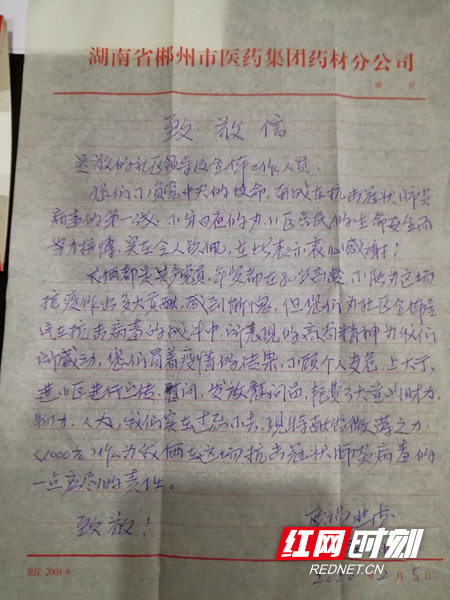 湖南省郴州市医药集团药材分公司
第 页
致敬信
尊敬的社区领导及全体工作人员:
您们不负党中央的使命,奋战在抗击冠状肺炎
病毒的第一线,不分日夜的为小区居民的生命安全而
努力拼搏,实在令人钦佩,在此表示衷心感谢!
我俩都是共产党员,年岁都在80岁高龄,不能为这场
抗疫作出多大贡献,感到惭愧,但您们为社区全体居
民在抗击病毒的战斗中所表现的高尚精神为我们
所感动,您们冒着疫情的危害,不顾个人安危,上大厅、
进小区进行宣传、慰问,发放慰问品,耗费了大量的财力、
物力、人力,我们实在过意不去,现特献出微薄之力,
(1000元)作为我俩在这场抗击冠状肺炎病毒的
一点应尽的责任。
致敬!
红网时刻
REDNET.CN
2001·6
2020年2月5日